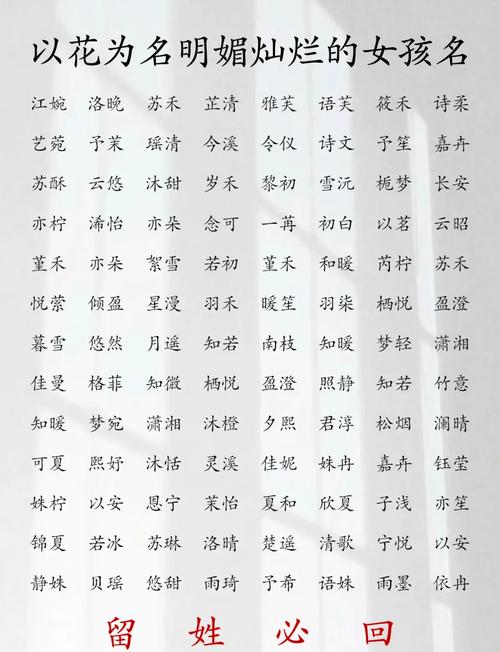 以花为名明媚灿烂的女孩名
江婉 洛晚 苏禾 芷清 雅芙 语芙 筱禾 诗柔
艺菀 予茉 瑶清 今溪 令仪 诗文 予笙 嘉卉
苏酥 云悠 沐甜 岁禾 黎初 雪沅 栀梦 长安
亦柠 浠怡 亦朵 念可 一苒 初白 以茗 云昭
堇禾 亦朵 絮雪 若初 堇禾 和暖 芮柠 苏禾
悦萦 倾盈 星漫 羽禾 暖笙 羽柒 栖悦 盈澄
暮雪 悠然 月遥 知若 南枝 知暖 梦轻 潇湘
佳曼 格菲 知微 栖悦 盈澄 照静 知若 竹意
知暖 梦宛 潇湘 沐橙 夕熙 君淳 松烟 澜晴
可夏 熙妤 沐恬 灵溪 佳妮 姝冉 嘉卉 钰莹
姝柠 以安 恩宁 茉怡 夏和 欣夏 子浅 亦笙
锦夏 若冰 苏琳 洛晴 楚遥 清歌 宁悦 以安
静姝 贝瑶 悠甜 雨琦 予希 语姝 雨墨 依冉
留姓必回